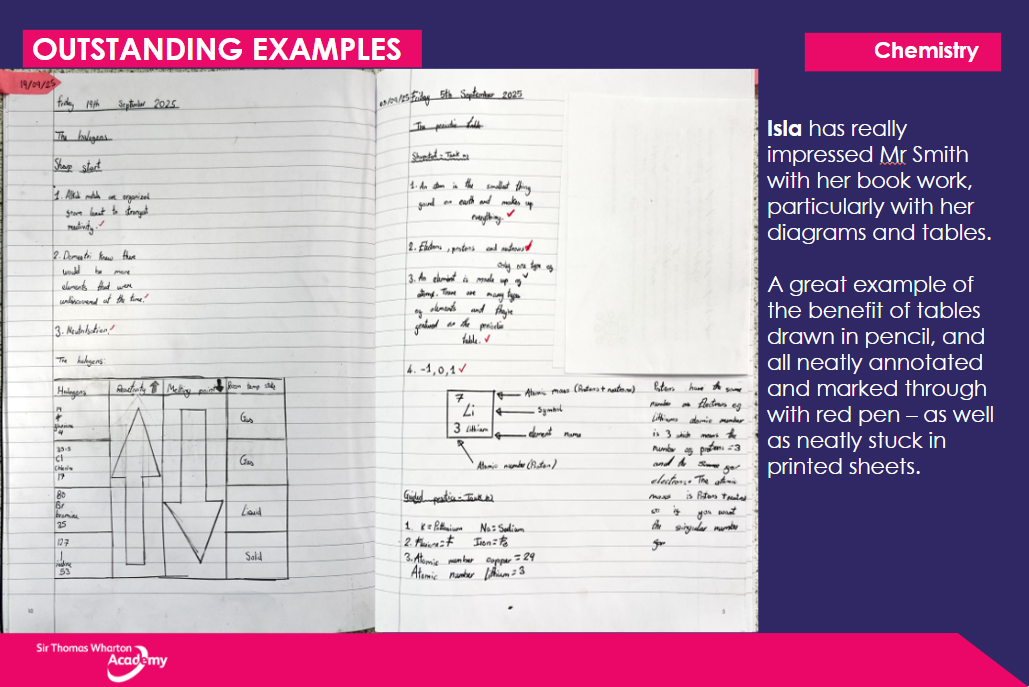 OUTSTANDING EXAMPLES
Chemistry
19/09/25
Friday 19th September 2025
The halogens
Sharp start
1. Alkali metals are organized
from least to strongest
reactivity.
2. knew there
would be more
elements that were
undiscovered at the time.
3. Neutralisation.
The halogens:
Halogens
Reactivity
Melting point
Room temp state
19
F
9
Gas
35.5
Cl
Chlorine
17
Gas
80
Br
bromine
Liquid
127
I
iodine
53
Solid
10
05/09/25 Friday 5th September 2025
The periodic table
Task
1. An atom is the smallest thing
found on earth and makes up
everything.
2. Electrons, protons and neutrons
only one type of
3. An element is made up of
atoms. There are many types
of elements and they're
on the periodic
table.
4. -1, 0, 1
7
Li
3 Lithium
Atomic mass (Protons + neutrons)
Symbol
element name
Atomic number (Proton)
Protons have the same
number as Electrons eg
Lithiums atomic number
is 3 which means the
number of protons = 3
and the same for
electrons. The atomic
mass is Protons +
so if you want
the singular number
for
Guided practice - Task
1. K = Na = Sodium
2. = F Iron = Fe
3. Atomic number copper = 29
Atomic number lithium = 3
Isla has really
impressed Mr Smith
with her book work,
particularly with her
diagrams and tables.
A great example of
the benefit of tables
drawn in pencil, and
all neatly annotated
and marked through
with red pen – as well
as neatly stuck in
printed sheets.
Sir Thomas Wharton
Academy